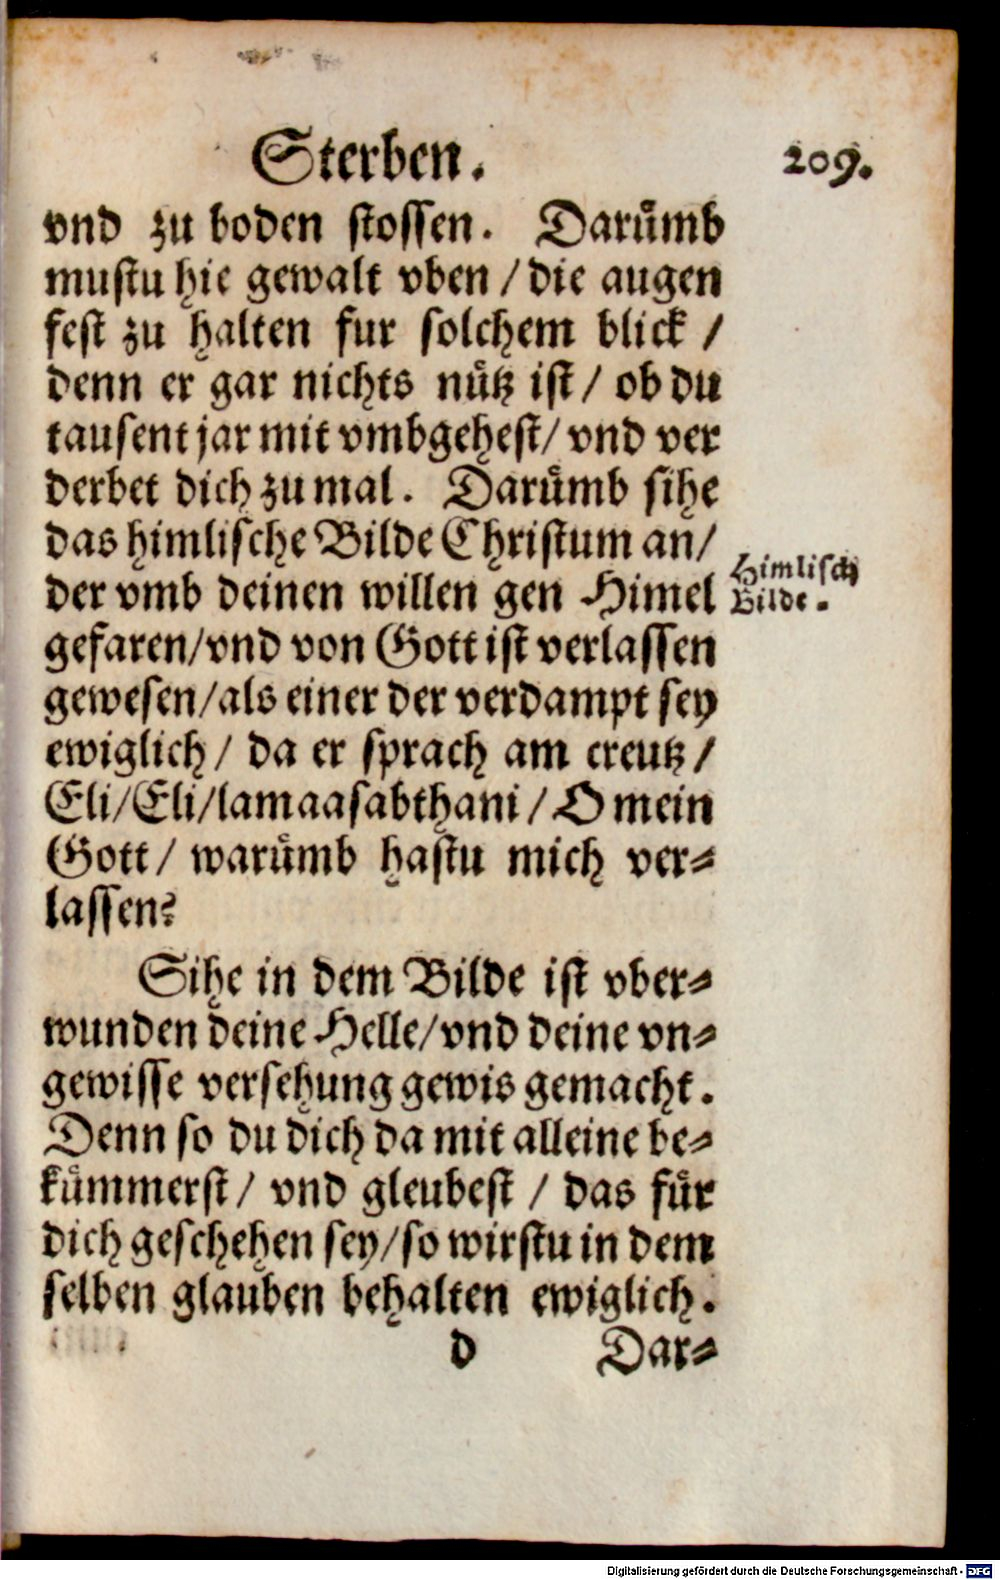 Sterben. 209.
vnd zu boden stossen. Darůmb
mustu hie gewalt vben / die augen
fest zu halten fur solchem blick /
denn er gar nichts nůtz ist / ob du
tausent jar mit vmbgehest / vnd ver
derbet dich zu mal. Darůmb sihe
das himlische Bilde Christum an /
der vmb deinen willen gen Himel
gefaren / vnd von Gott ist verlassen
gewesen / als einer der verdampt sey
ewiglich / da er sprach am creutz /
Eli / Eli / lamaasabthani / O mein
Gott / warůmb hastu mich ver⸗
lassen?
Himlisch
Bilde.
Sihe in dem Bilde ist vber⸗
wunden deine Helle / vnd deine vn⸗
gewisse versehung gewis gemacht.
Denn so du dich da mit alleine be⸗
kůmmerst / vnd gleubest / das fůr
dich geschehen sey / so wirstu in dem
selben glauben behalten ewiglich.
d Dar⸗
Digitalisierung gefördert durch die Deutsche Forschungsgemeinschaft - DFG